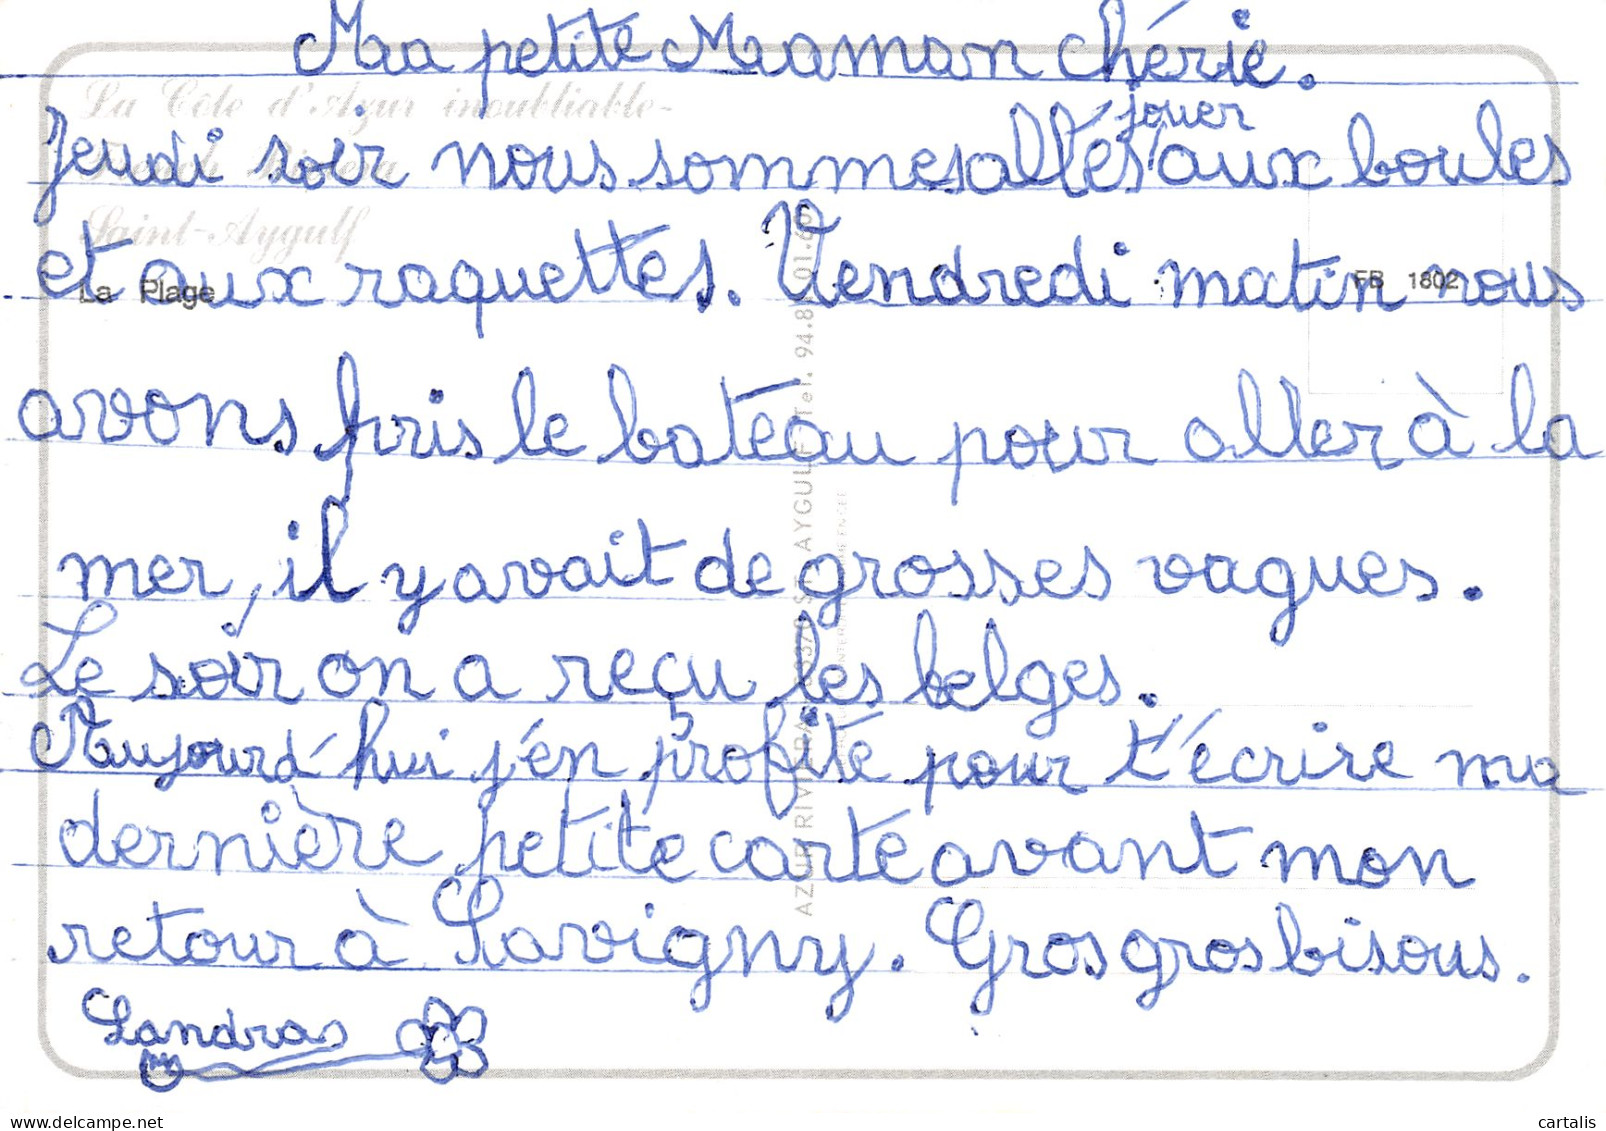 Ma petite Maman chérie.
La Côte d'Azur inoubliable-
jouer
Jeudi soir nous sommes allés aux boules
Saint-Aygulf
et aux raquettes. Vendredi matin nous
La Plage
FB 1802
avons pris le bateau pour aller à la
mer, il y avait de grosses vagues.
Le soir on a reçu les belges.
Aujourd'hui j'en profite pour t'écrire ma
dernière petite carte avant mon
retour à Savigny. Gros gros bisous.
Sandras
cartalis